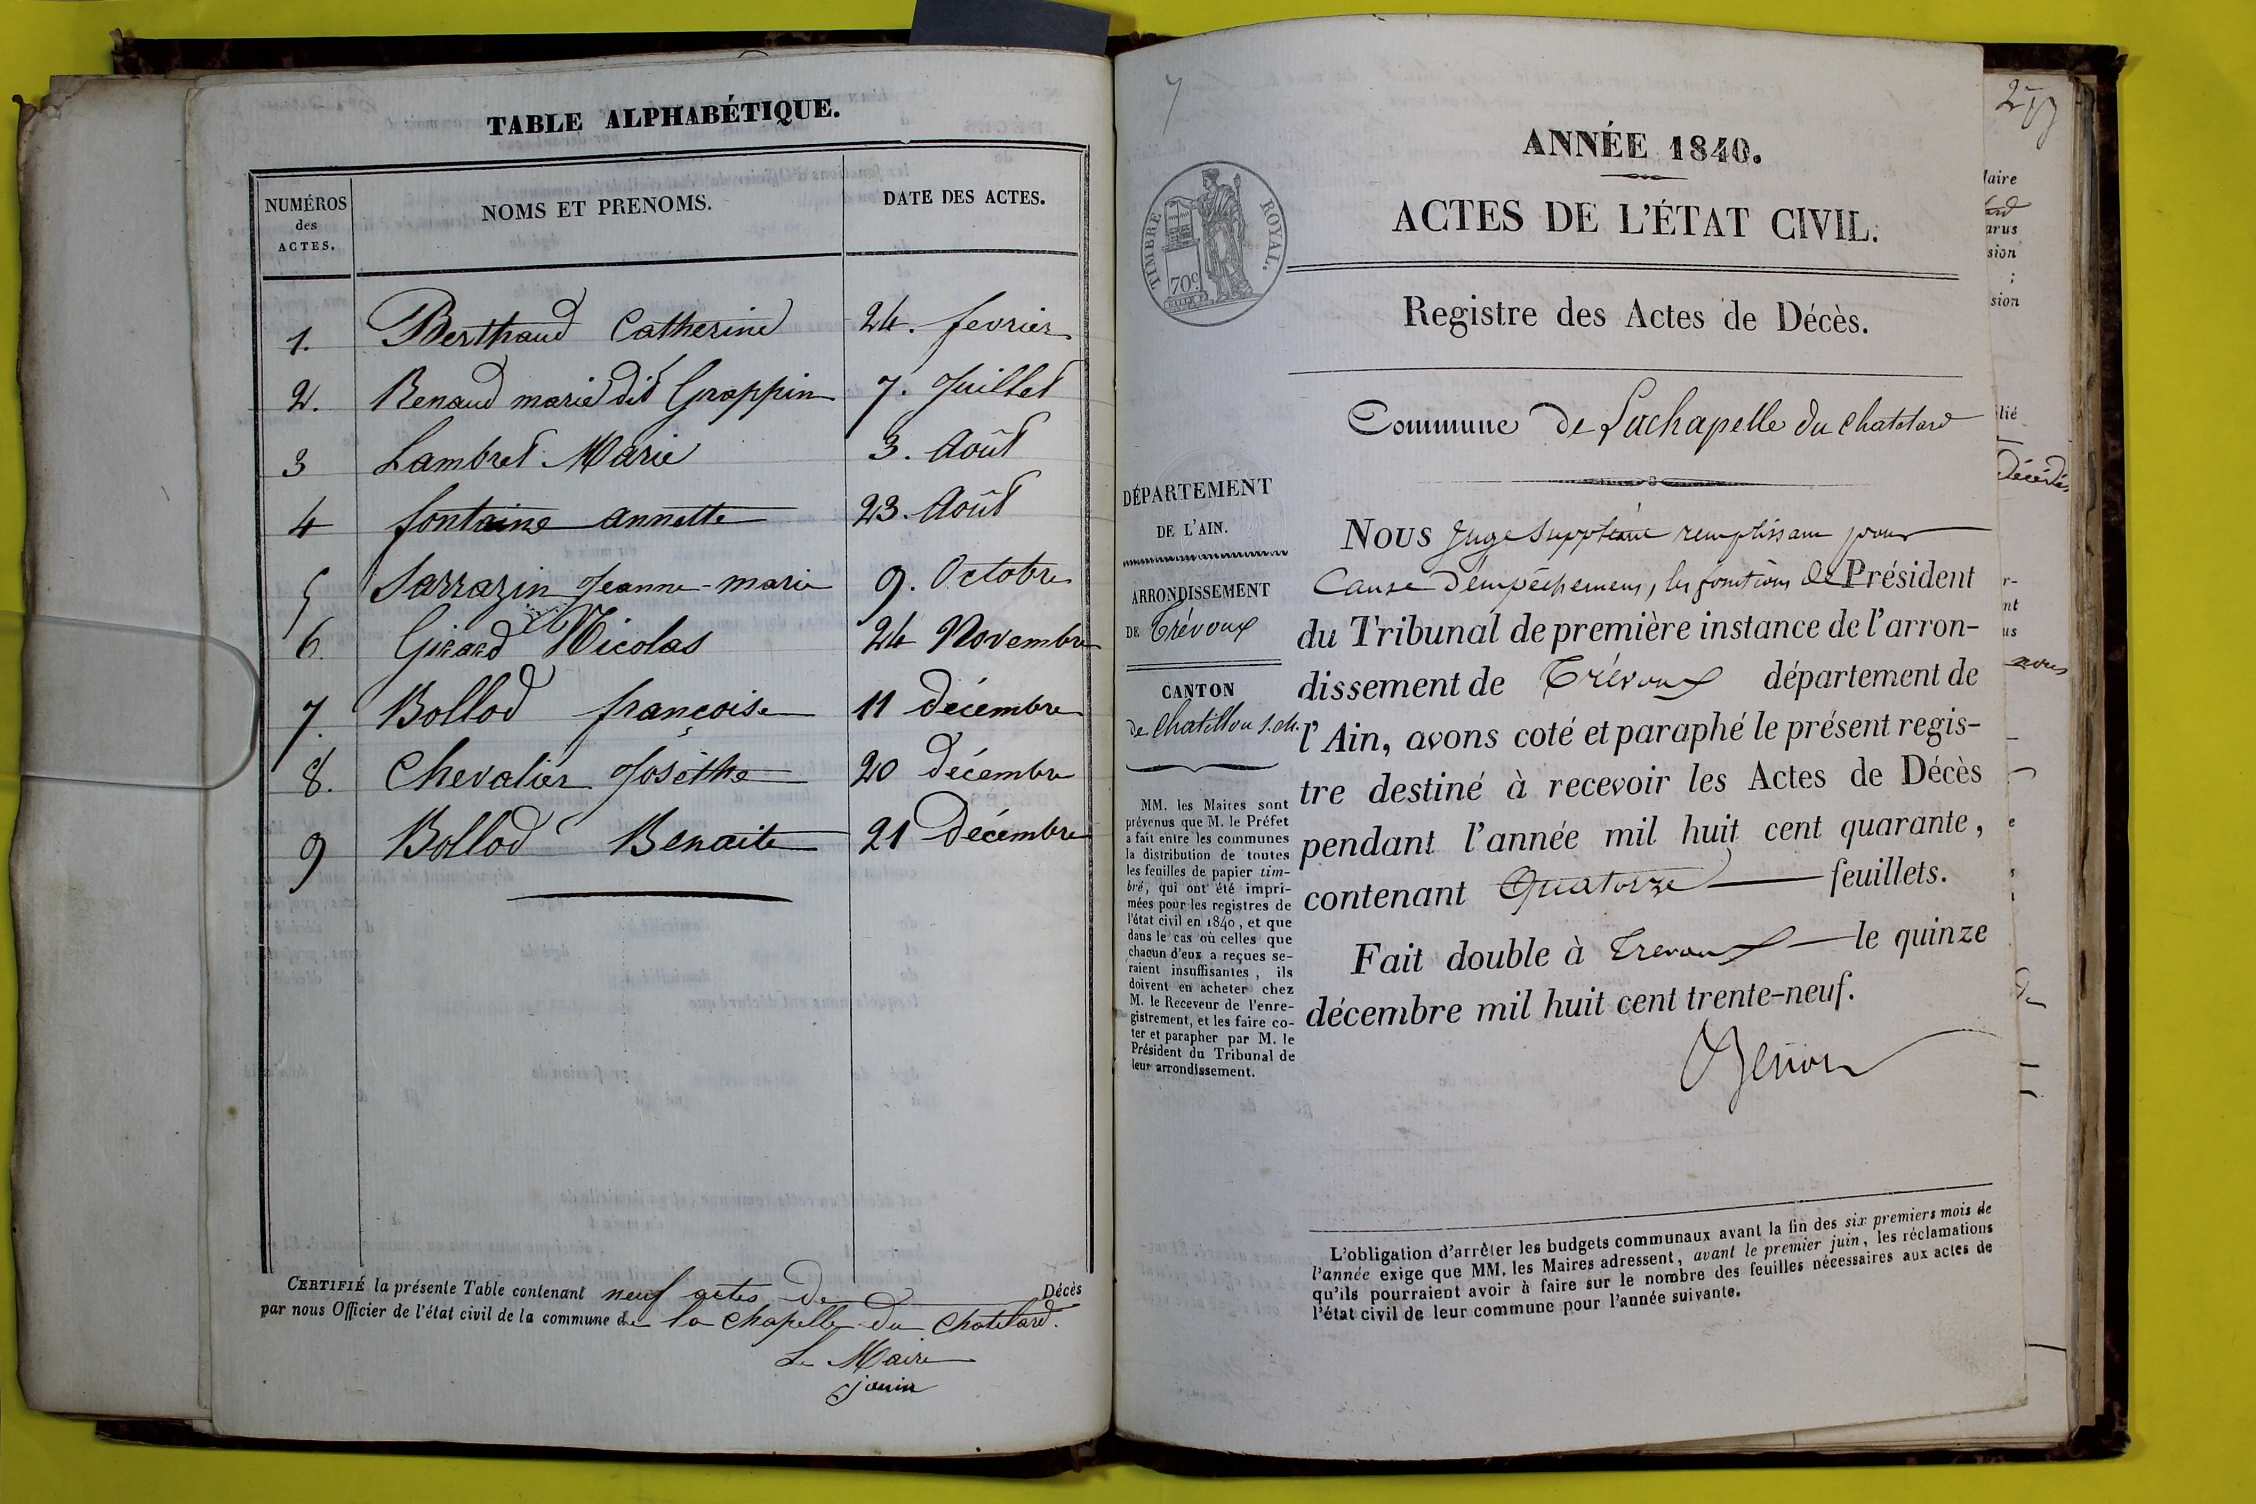 TABLE ALPHABÉTIQUE.
NUMÉROS
des
ACTES.
NOMS ET PRENOMS.
DATE DES ACTES.
1. Berthaud Catherine 24. fevrier
2. Renaud marie dit Grappin 7. Juillet
3 Lambret Marie 3. Août
4 fontaine annette 23. Août
5 Sarrazin Jeanne-marie 9. Octobre
6. Girard Nicolas 24 Novembre
7. Bollod françoise 11 décembre
8. Chevalier Josèthe 20 décembre
9 Bollod Benaite 21 Décembre
CERTIFIÉ la présente Table contenant neuf actes de Décès
par nous Officier de l'état civil de la commune de la chapelle du Chatelard.
Le Maire
jouin
7
ANNÉE 1840.
ACTES DE L'ÉTAT CIVIL.
TIMBRE ROYAL.
70c
Registre des Actes de Décès.
Commune de Lachapelle du chatelard
DÉPARTEMENT
DE L'AIN.
ARRONDISSEMENT
DE Trévoux
CANTON
de Chatillon s. ch.
MM. les Maires sont
prévenus que M. le Préfet
a fait entre les communes
la distribution de toutes
les feuilles de papier tim-
bré, qui ont été impri-
mées pour les registres de
l'état civil en 1840, et que
dans le cas où celles que
chacun d'eux a reçues se-
raient insuffisantes, ils
doivent en acheter chez
M. le Receveur de l'enre-
gistrement, et les faire co-
ter et parapher par M. le
Président du Tribunal de
leur arrondissement.
NOUS Juge Suppléant remplissant pour
Cause d'empêchement, les fonctions de Président
du Tribunal de première instance de l'arron-
dissement de Trévoux département de
l'Ain, avons coté et paraphé le présent regis-
tre destiné à recevoir les Actes de Décès
pendant l'année mil huit cent quarante,
contenant Quatorze feuillets.
Fait double à Trevoux le quinze
décembre mil huit cent trente-neuf.
L'obligation d'arrêter les budgets communaux avant la fin des six premiers mois de
l'année exige que MM. les Maires adressent, avant le premier juin, les réclamations
qu'ils pourraient avoir à faire sur le nombre des feuilles nécessaires aux actes de
l'état civil de leur commune pour l'année suivante.